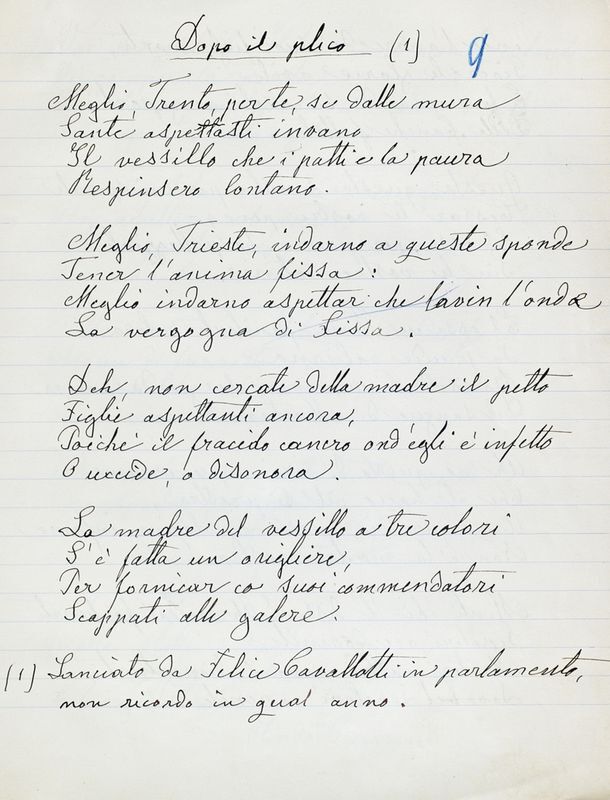 Dopo il plico (1)
9
Meglio, Trento, per te, se dalle mura
Sante aspettasti invano
Il vessillo che i patti e la paura
Respinsero lontano.
Meglio, Trieste, indarno a queste sponde
Tener l'anima fissa:
Meglio indarno aspettar che lavin l'onde
La vergogna di Lissa.
Deh, non cercate della madre il petto
Figlie aspettanti ancora,
Poiché il fracedo cancro ond'egli è infetto
O uccide, o disonora.
La madre del vessillo a tre colori
S'è fatta un origliere,
Per fornicar co' suoi commendatori
Scappati alle galere.
(1) Lanciato da Felice Cavallotti in parlamento,
non ricordo in qual anno.